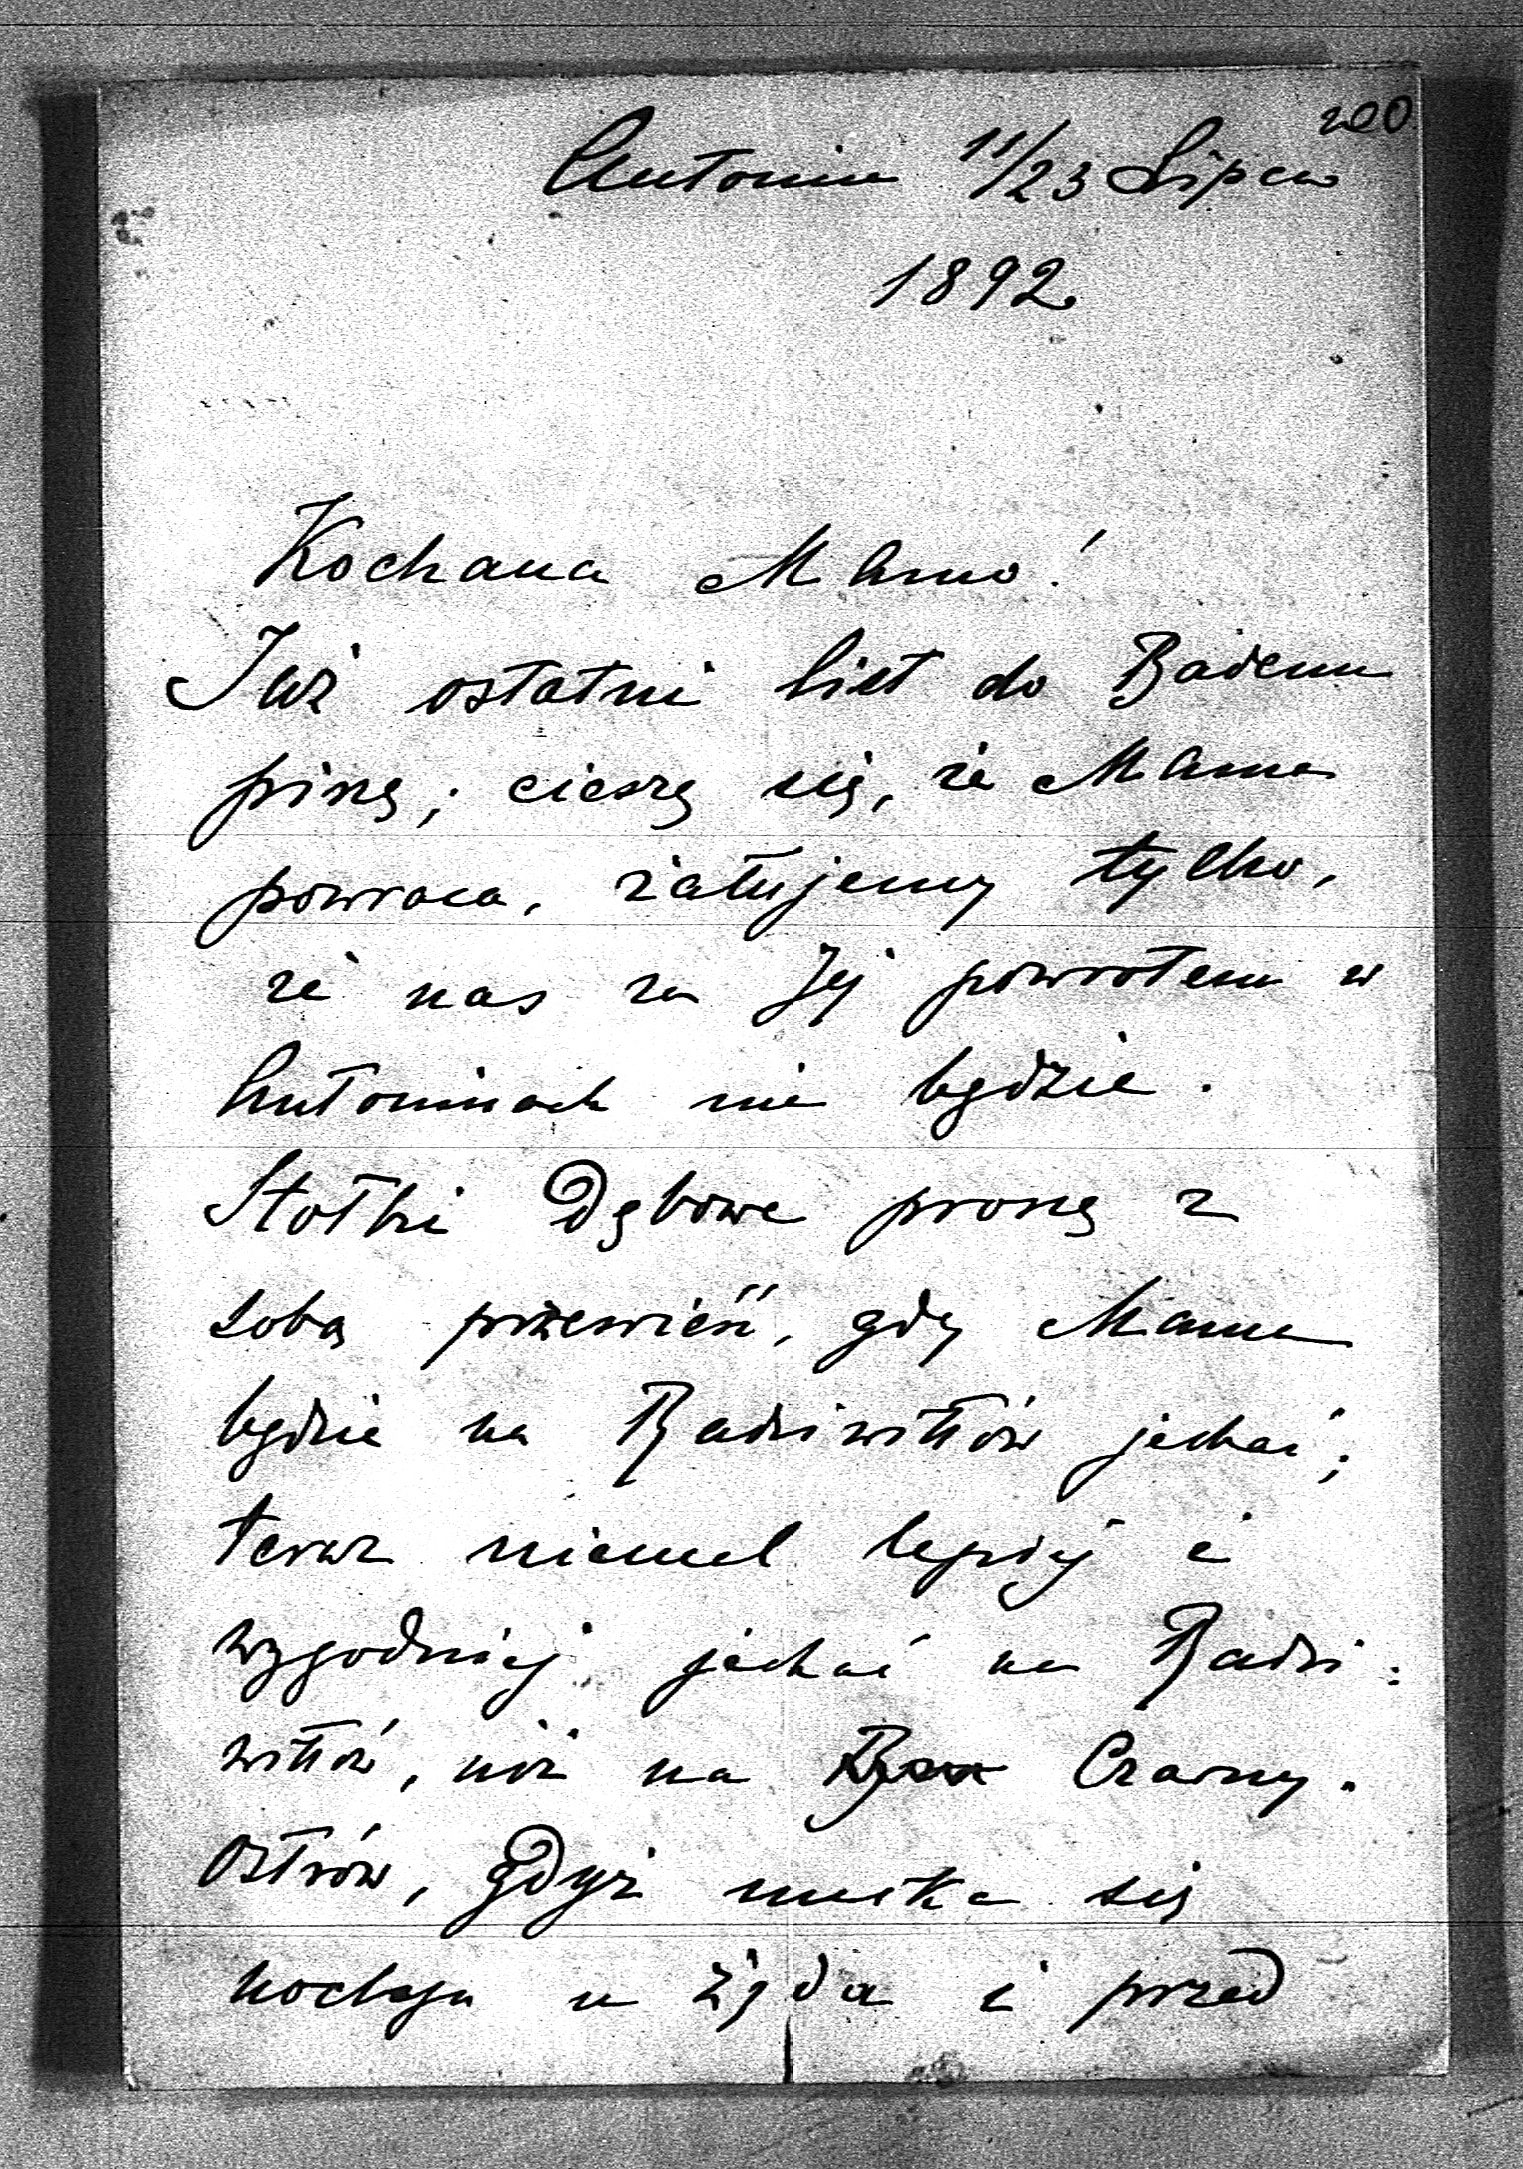 200
Antonin 11/23 Lipca
1892.
Kochana Mamo!
Już ostatni list do Badenu
piszę; cieszę się, że Mama
powraca, żałujemy tylko,
że nas za Jej powrotem w
Antoninach nie będzie.
Stołki Dębowe proszę z
sobą przewieść, gdy Mama
będzie na Radziwiłłów jechać;
teraz niemal lepiej i
wygodniej jechać na Radzi:
wiłłów, niż na Czarny.
Ostrów, gdyż unika się
noclegu u żyda i przed